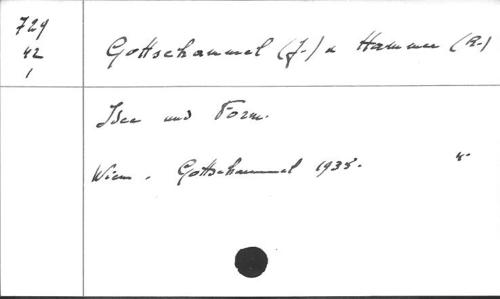 729
42
1
Gottschammel (J.) u Hammer (R.)
Idee und Form.
Wien. Gottschammel 1935.